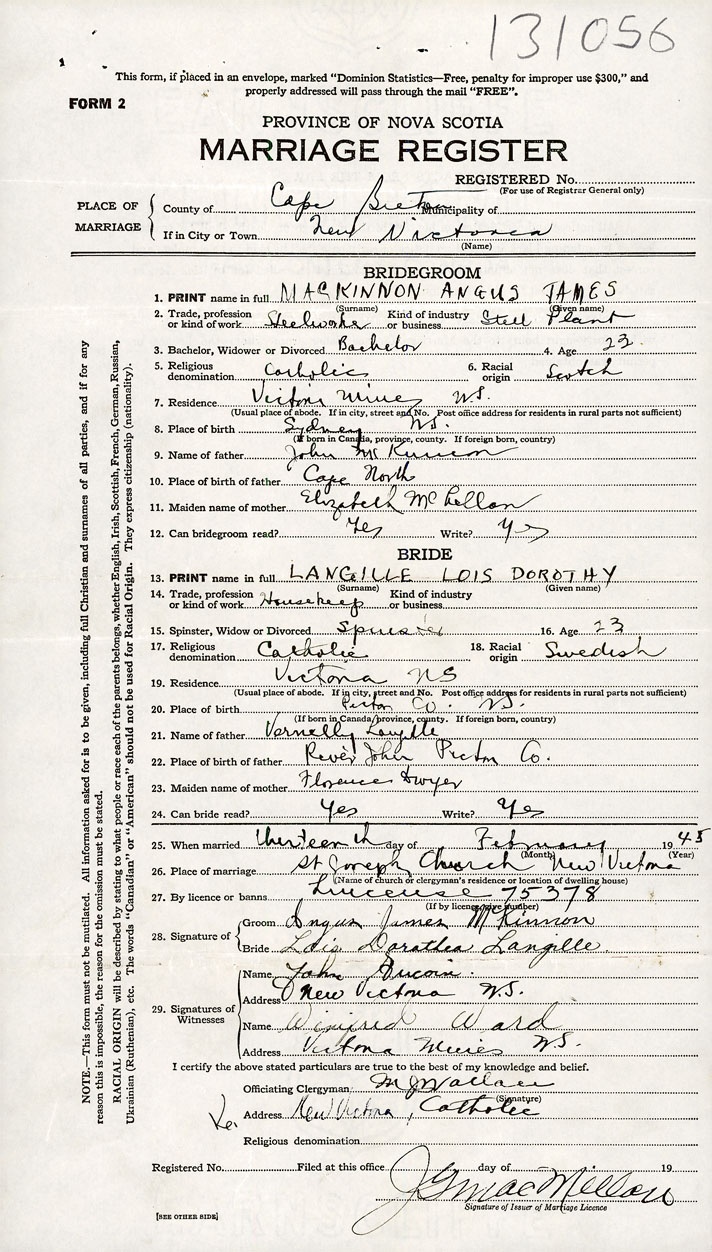 131056
This form, if placed in an envelope, marked "Dominion Statistics—Free, penalty for improper use $300," and
properly addressed will pass through the mail "FREE".
FORM 2
PROVINCE OF NOVA SCOTIA
MARRIAGE REGISTER
REGISTERED No.
(For use of Registrar General only)
PLACE OF MARRIAGE
County of Cape Breton Municipality of
If in City or Town New Victoria
(Name)
BRIDEGROOM
1. PRINT name in full MACKINNON ANGUS JAMES
(Surname) (Given name)
2. Trade, profession or kind of work Steelworker Kind of industry or business Steel Plant
3. Bachelor, Widower or Divorced Bachelor 4. Age 23
5. Religious denomination Catholic 6. Racial origin Scotch
7. Residence Victoria Mines N.S.
(Usual place of abode. If in city, street and No. Post office address for residents in rural parts not sufficient)
8. Place of birth Sydney N.S.
(If born in Canada, province, county. If foreign born, country)
9. Name of father John McKinnon
10. Place of birth of father Cape North
11. Maiden name of mother Elizabeth McLellan
12. Can bridegroom read? Yes Write? Yes
BRIDE
13. PRINT name in full LANGILLE LOIS DOROTHY
(Surname) (Given name)
14. Trade, profession or kind of work Housekeep Kind of industry or business
15. Spinster, Widow or Divorced Spinster 16. Age 23
17. Religious denomination Catholic 18. Racial origin Swedish
19. Residence Victoria NS
(Usual place of abode. If in city, street and No. Post office address for residents in rural parts not sufficient)
20. Place of birth Pictou Co. N.S.
(If born in Canada, province, county. If foreign born, country)
21. Name of father Langille
22. Place of birth of father River John Pictou Co.
23. Maiden name of mother Florence Dwyer
24. Can bride read? Yes Write? Yes
25. When married thirteenth day of February 1945
(Month) (Year)
26. Place of marriage St Joseph Church New Victoria
(Name of church or clergyman's residence or location of dwelling house)
27. By licence or banns 75378
(If by licence give number)
28. Signature of
Groom Angus James McKinnon
Bride Lois Dorathea Langille
29. Signatures of Witnesses
Name John Aucoin
Address New Victoria N.S.
Name Winifred Ward
Address Victoria Mines N.S.
I certify the above stated particulars are true to the best of my knowledge and belief.
Officiating Clergyman M J Wallace
(Signature)
Address New Victoria, Catholic
Religious denomination
Registered No. Filed at this office day of 19
J G MacMillan
Signature of Issuer of Marriage Licence
[SEE OTHER SIDE]
NOTE.—This form must not be mutilated. All information asked for is to be given, including full Christian and surnames of all parties, and if for any
reason this is impossible, the reason for the omission must be stated.
RACIAL ORIGIN will be described by stating to what people or race each of the parents belongs, whether English, Irish, Scottish, French, German, Russian,
Ukrainian (Ruthenian), etc. The words "Canadian" or "American" should not be used for Racial Origin. They express citizenship (nationality).